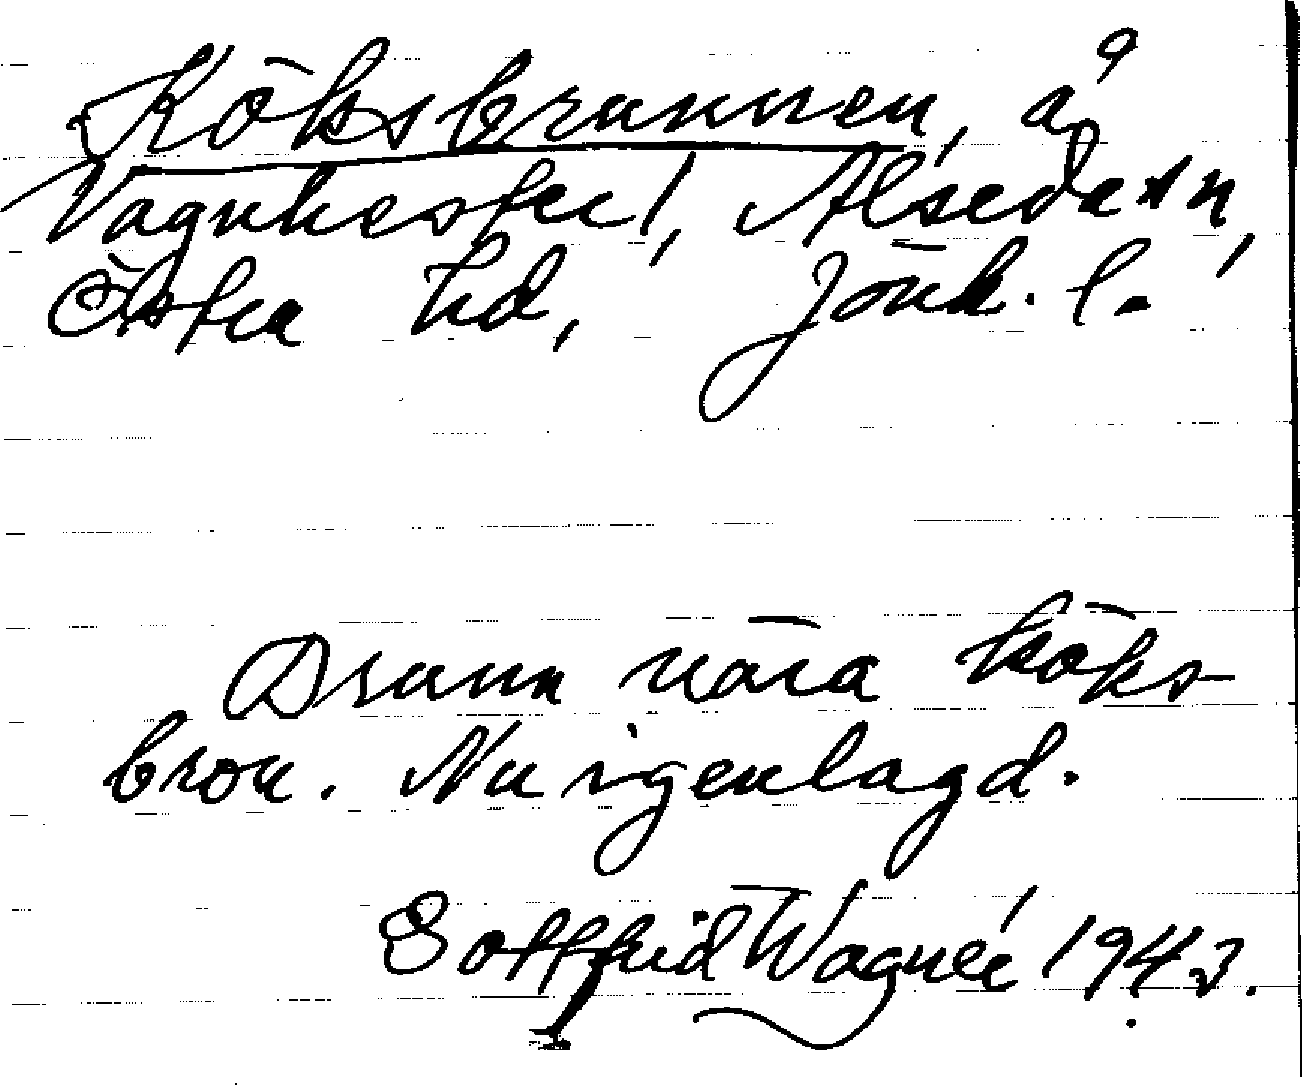 Köksbrunnen, å
Vagnhester, Alseda sn,
Östra hd, Jönk. l.
Brunn nära köks-
bron. Nu igenlagd.
Gottfrid Wagnér 1943.